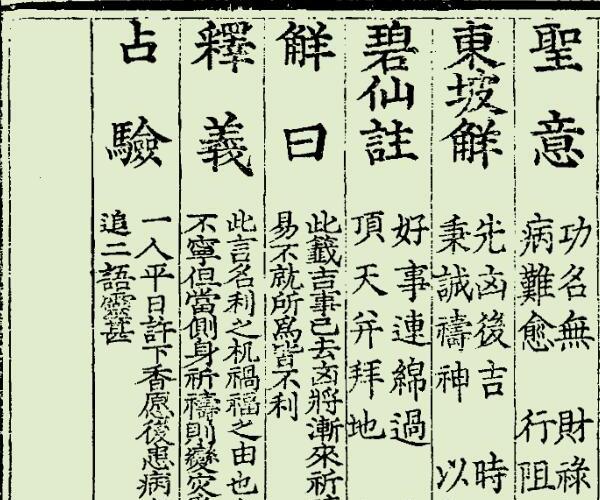 聖意
功名無 財祿
病難愈 行阻
東坡觧
先凶後吉 時
秉誠禱神 以
碧仙註
好事連綿過
頂天并拜地
觧曰
此籤吉事已去凶將漸來祈
易不就所爲皆不利
釋義
此言名利之机禍福之由也
不寧但當側身祈禱則變灾
占驗
一人平日許下香愿後患病
追二語靈甚